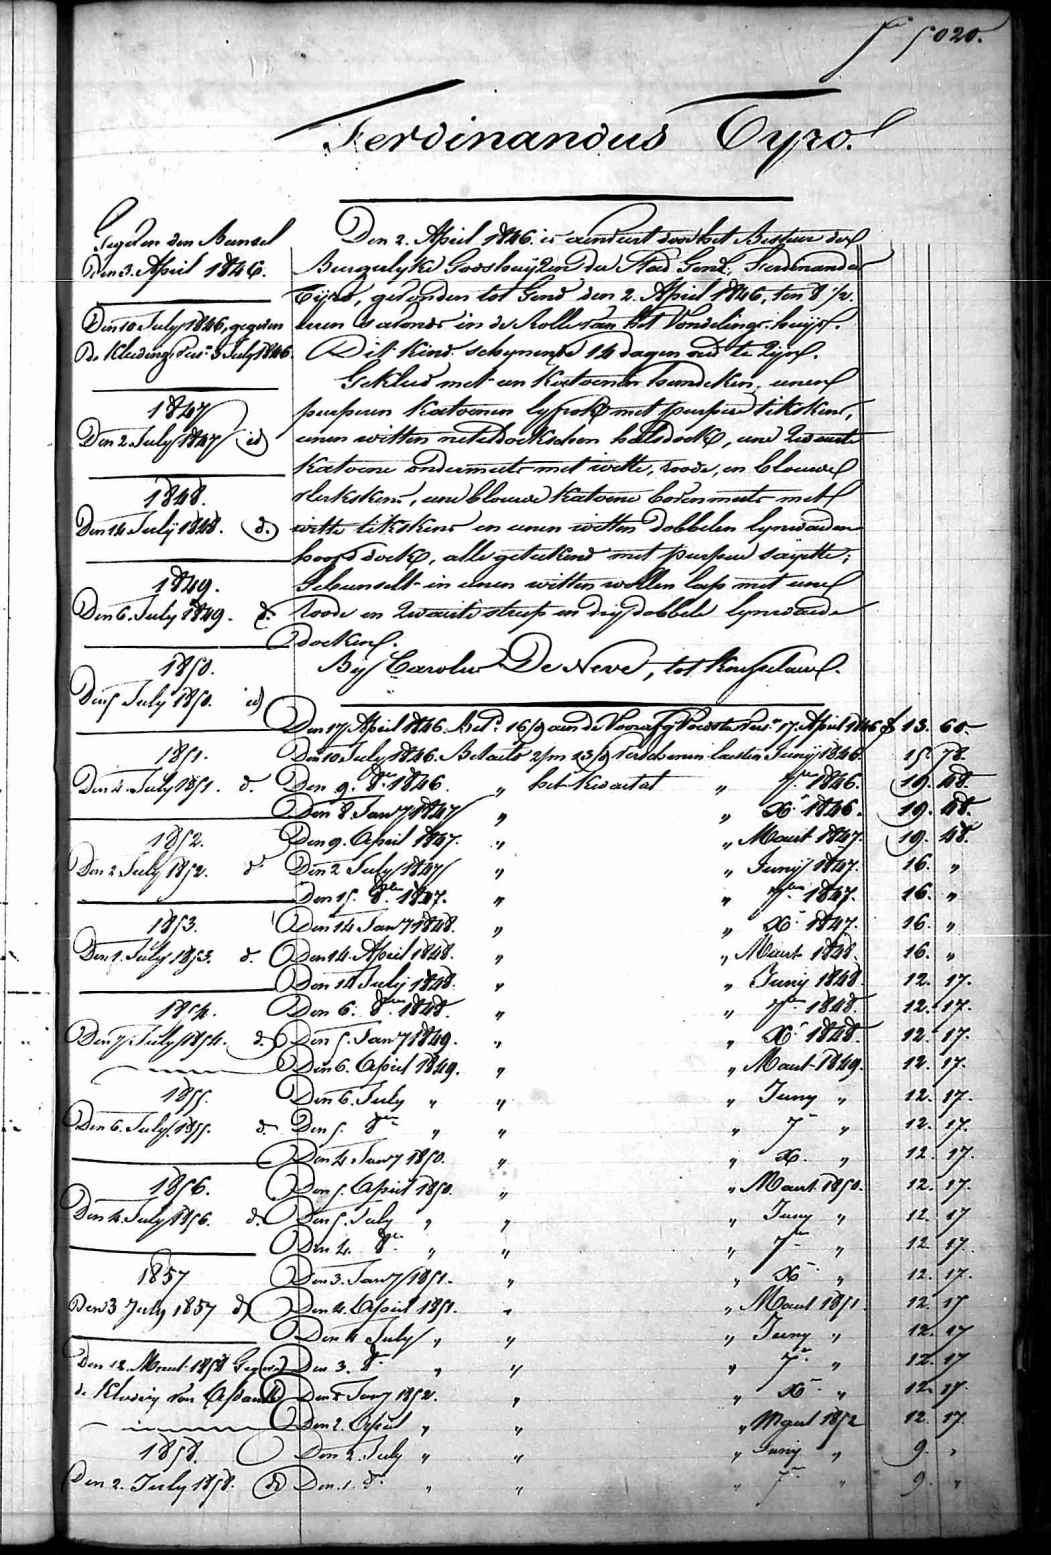 5020.
Ferdinandus Tyrol
Gegeven den Bunsel
Den 3. April 1846.
Den 10 July 1846, gegeven
De Kleeding Pers. 3 July 1846.
1847
Den 2. July 1847 id
1848.
Den 14 July 1848. d.
1849.
Den 6. July 1849. d.
1850.
Den 5 July 1850. id
1851.
Den 4. July 1851. d.
1852.
Den 2 July 1852. d
1853.
Den 1. July 1853. d.
1854.
Den 7. July 1854. d.
1855.
Den 6. July 1855. d
1856.
Den 4. July 1856. d.
1857
Den 3 July 1857 d
Den 12. Maart 1858 Gegeven
de Kleding van
1858.
Den 2. July 1858. d
Den 2. April 1846. is aenveert door het Bestuer der
Burgerlyke Godshuyzen der Stad Gend, Ferdinandus
Tyrol, gevonden tot Gend den 2. April 1846, ten 8 1/2.
uren s'avonds in de Rolle van het Vondelings-huys.
Dit Kind schynende 14 dagen oud te zyn.
Gekleed met een Katoenen hemdeken, eenen
purperen katoenen lyfrok met purper tikskens,
eenen witten neteldoekschen halsdoek, eene zwarte
Katoene ondermuts met witte, roode, en blauwe
sterkskens, eene blouwe katoene bovenmuts met
witte tikskens en eenen witten dobbelen lynwaeden
hoofddoek, alle geteekend met purper sayette;
Gebunselt in eenen witten wollen lap met eene
roode en zwarte streep en dry dobbele lynwaede
doeken.
By Carolus De Neve, tot
Den 17 April 1846. Bet. 16/9 aen de Voorafg Voedster Pers. 17. April 1846 f 13. 60.
Den 10 July 1846. Betaelt 2/m 23/d verschenen laesten Juny 1846. 15. 78.
Den 9. 8. 1846. " het Kwartael " 7. 1846. 19. 48.
Den 8 Jany 1847 " " X. 1846. 19. 48.
Den 9. April 1847. " " Maart 1847. 19. 48.
Den 2 July 1847 " " Juny 1847. 16. "
Den 15. 8. 1847. " " 7. 1847. 16. "
Den 14 Jany 1848. " " X. 1847. 16. "
Den 14 April 1848. " " Maart 1848. 16. "
Den 14 July 1848. " " Juny 1848. 12. 17.
Den 6. 8. 1848. " " 7. 1848. 12. 17.
Den 5. Jany 1849. " " X. 1848. 12. 17.
Den 6. April 1849. " " Maart 1849. 12. 17.
Den 6. July " " " Juny " 12. 17.
Den 5. 8. " " " 7. " 12. 17.
Den 4. Jany 1850. " " X. " 12. 17.
Den 5. April 1850. " " Maart 1850. 12. 17.
Den 5. July " " " Juny " 12. 17
Den 4. 8. " " " 7. " 12 17.
Den 3. Jany 1851. " " X. " 12. 17.
Den 4. April 1851. " " Maart 1851. 12. 17
Den 4 July " " " Juny " 12. 17
Den 3. 8. " " " 7. " 12. 17
Den 2 Jany 1852. " " X. " 12. 17.
Den 2. April " " " Maart 1852 12. 17.
Den 2. July " " " Juny " 9. "
Den 1. 8. " " " 7. " 9. "